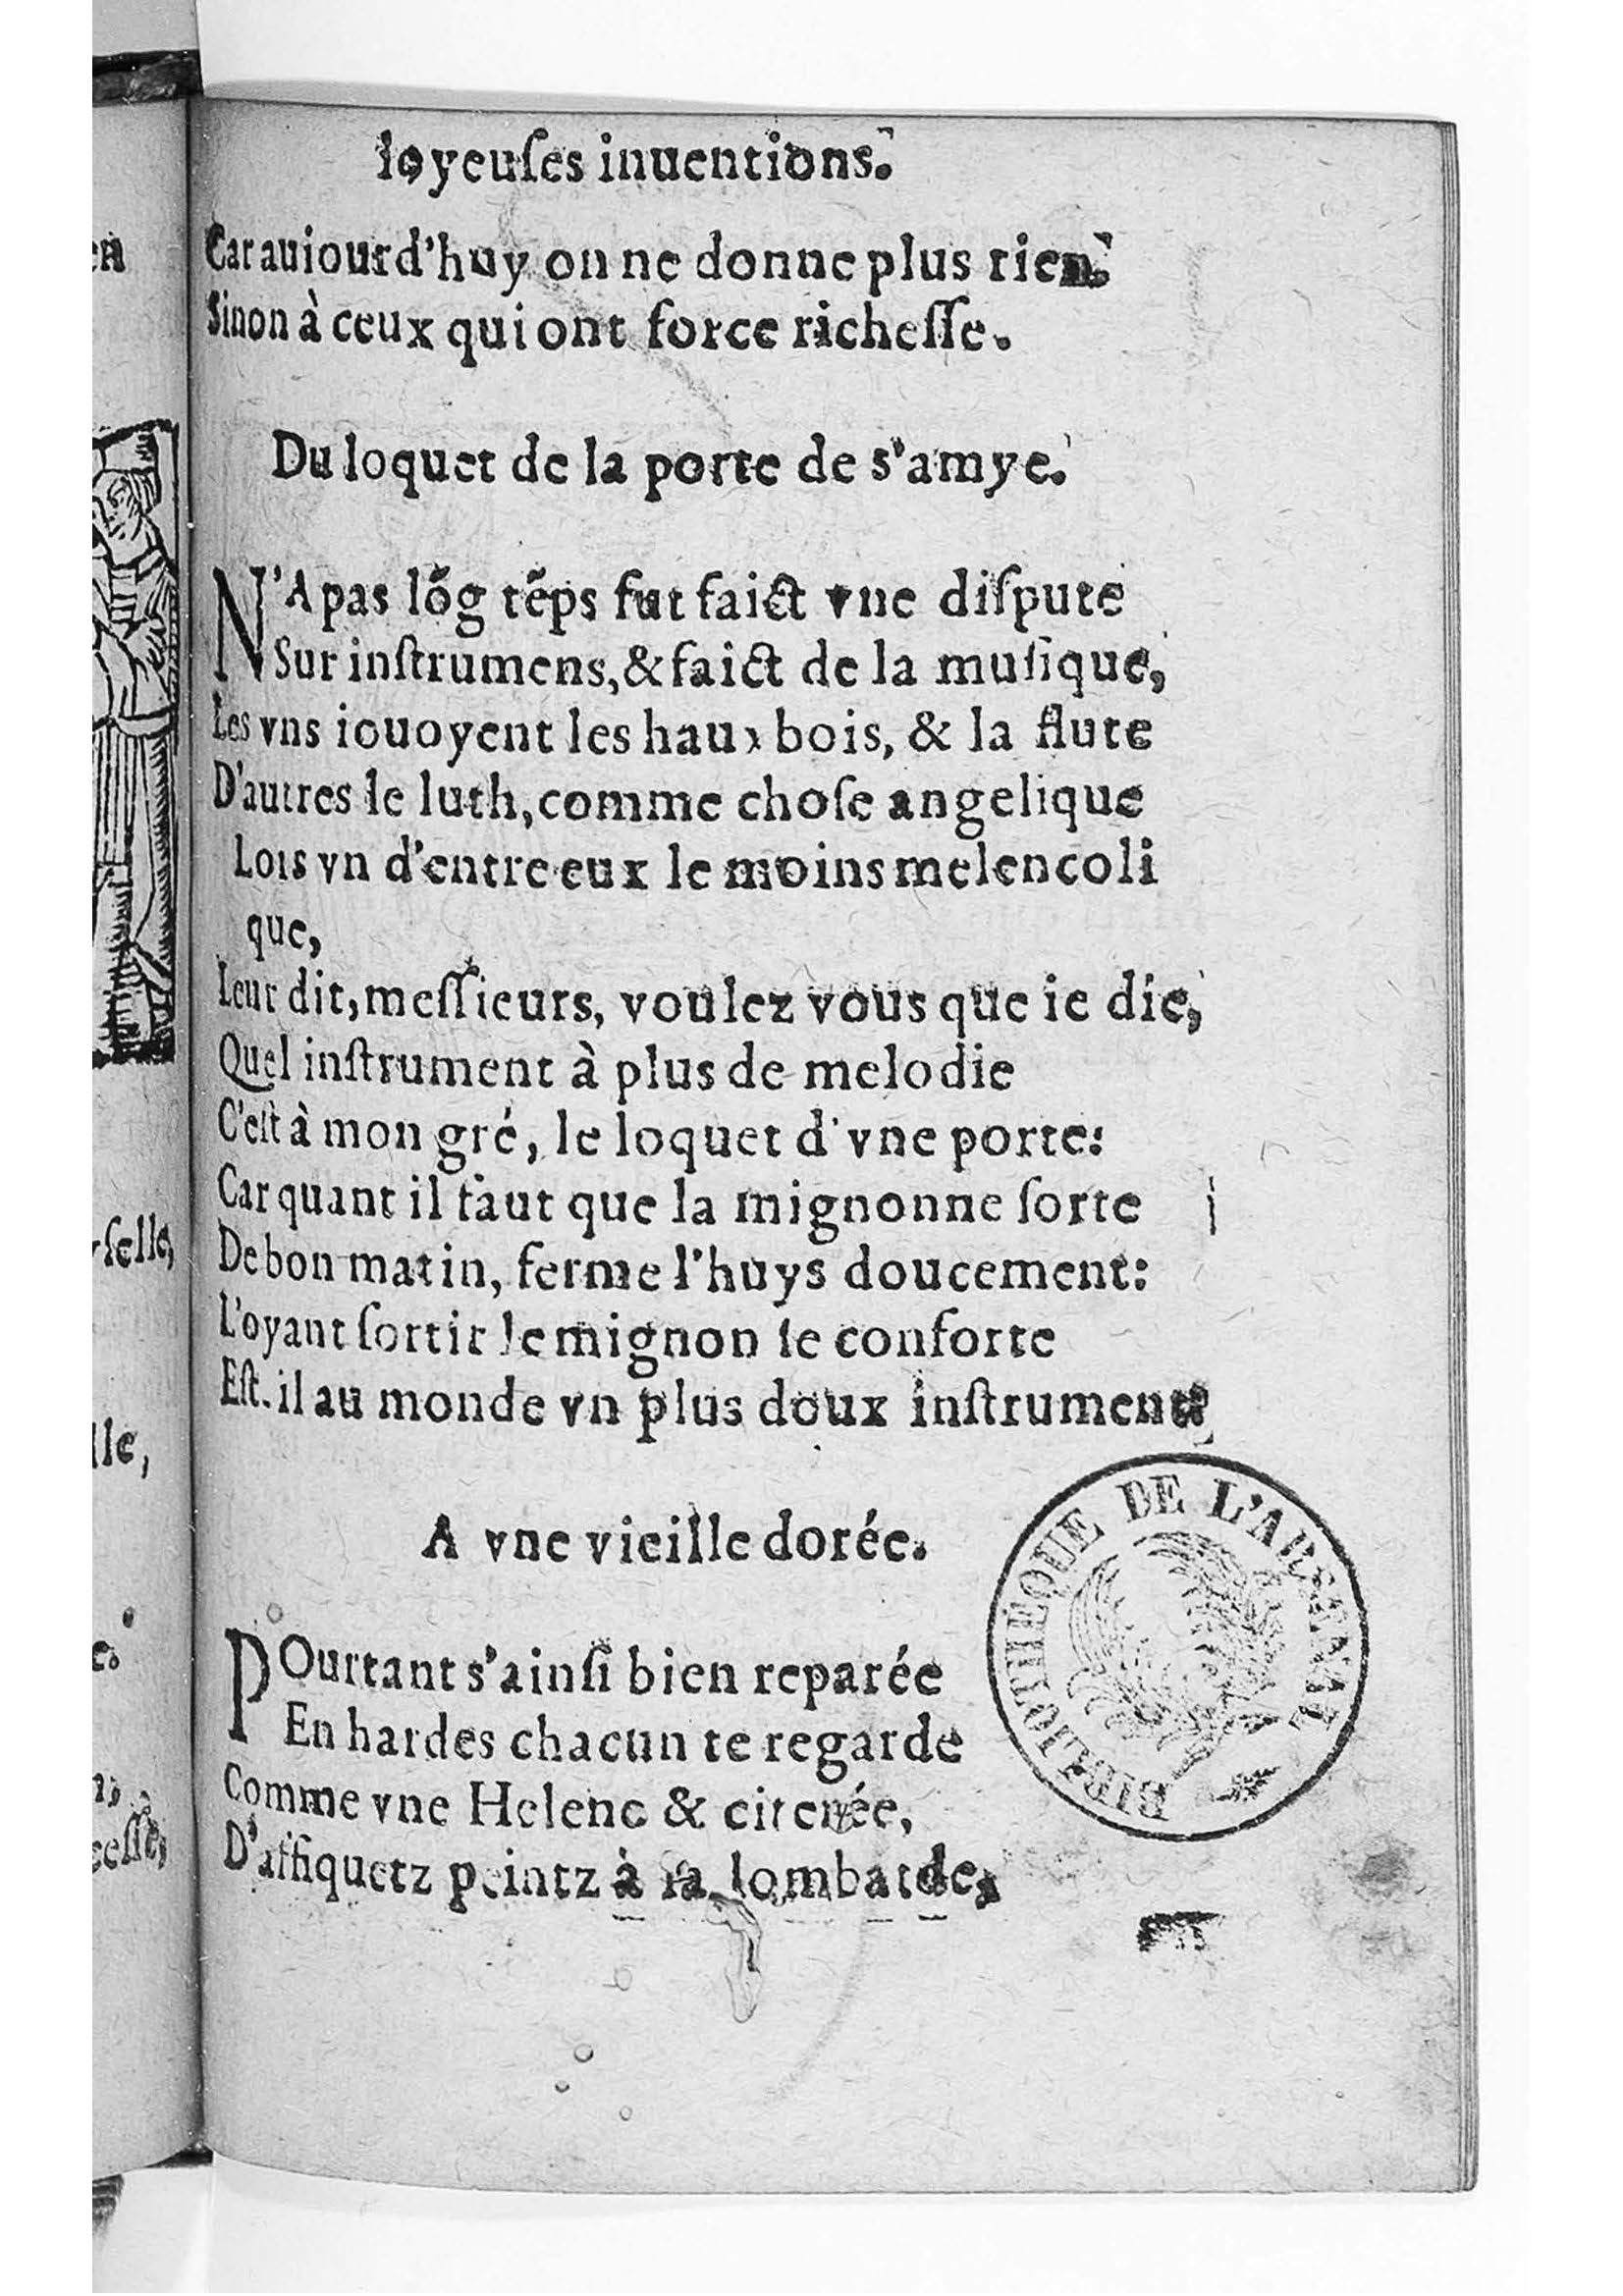 Ioyeuſes inuentions.
Car auiourd'huy on ne donne plus rien.
Sinon à ceux qui ont force richeſſe.
Du loquet de la porte de s'amye.
N'A pas lõg tẽps fut faict vne diſpute
Sur inſtrumens, & faict de la muſique,
Les vns iouoyent les haux bois, & la flute
D'autres le luth, comme choſe angelique
Lors vn d'entre eux le moins melencoli
que,
Leur dit, meſſieurs, voulez vous que ie die,
Quel inſtrument à plus de melodie
C'eſt à mon gré, le loquet d'vne porte:
Car quant il faut que la mignonne ſorte
De bon matin, ferme l'huys doucement:
L'oyant ſortir le mignon ſe conforte
Eſt-il au monde vn plus doux inſtrument?
A vne vieille dorée.
POurtant s'ainſi bien reparée
En hardes chacun te regarde
Comme vne Helene & citerée,
D'affiquetz peintz à la lombarde,
BIBLIOTHÈQUE DE L'ARSENAL
en
rſelle,
lle,
e.
n,
ceſſe,